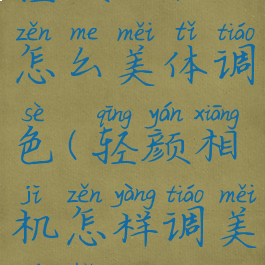 zěn me měi tǐ tiáo
怎么美体调
sè qīng yán xiāng
色(轻颜相
jī zěn yàng tiáo měi
机怎样调美